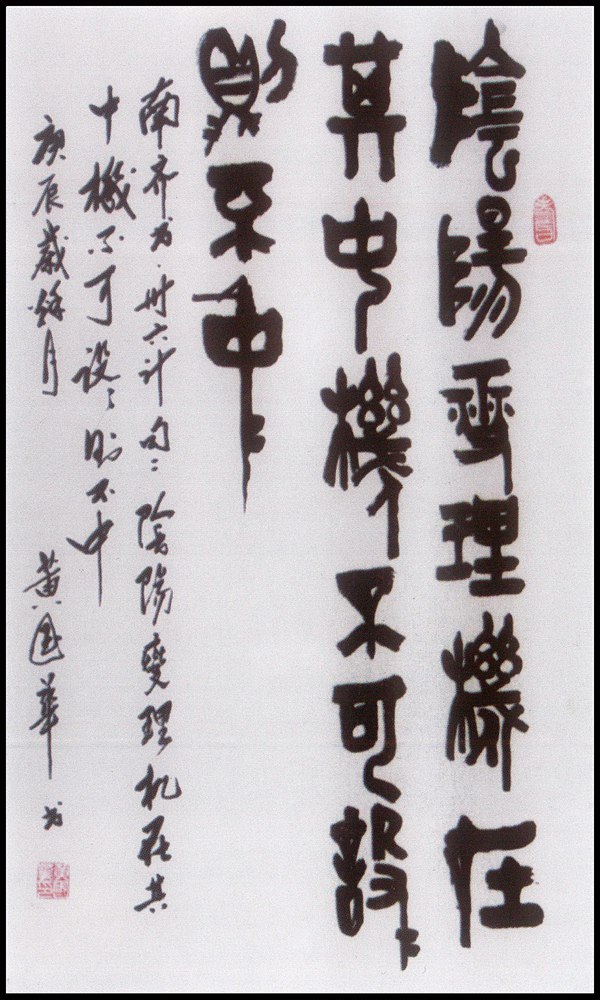 陰陽燮理機在
其中機不可設
則不中
南齐书·卅六计句：陰陽燮理机在其
中機不可設々則不中
庚辰歲餘月 黄国華书